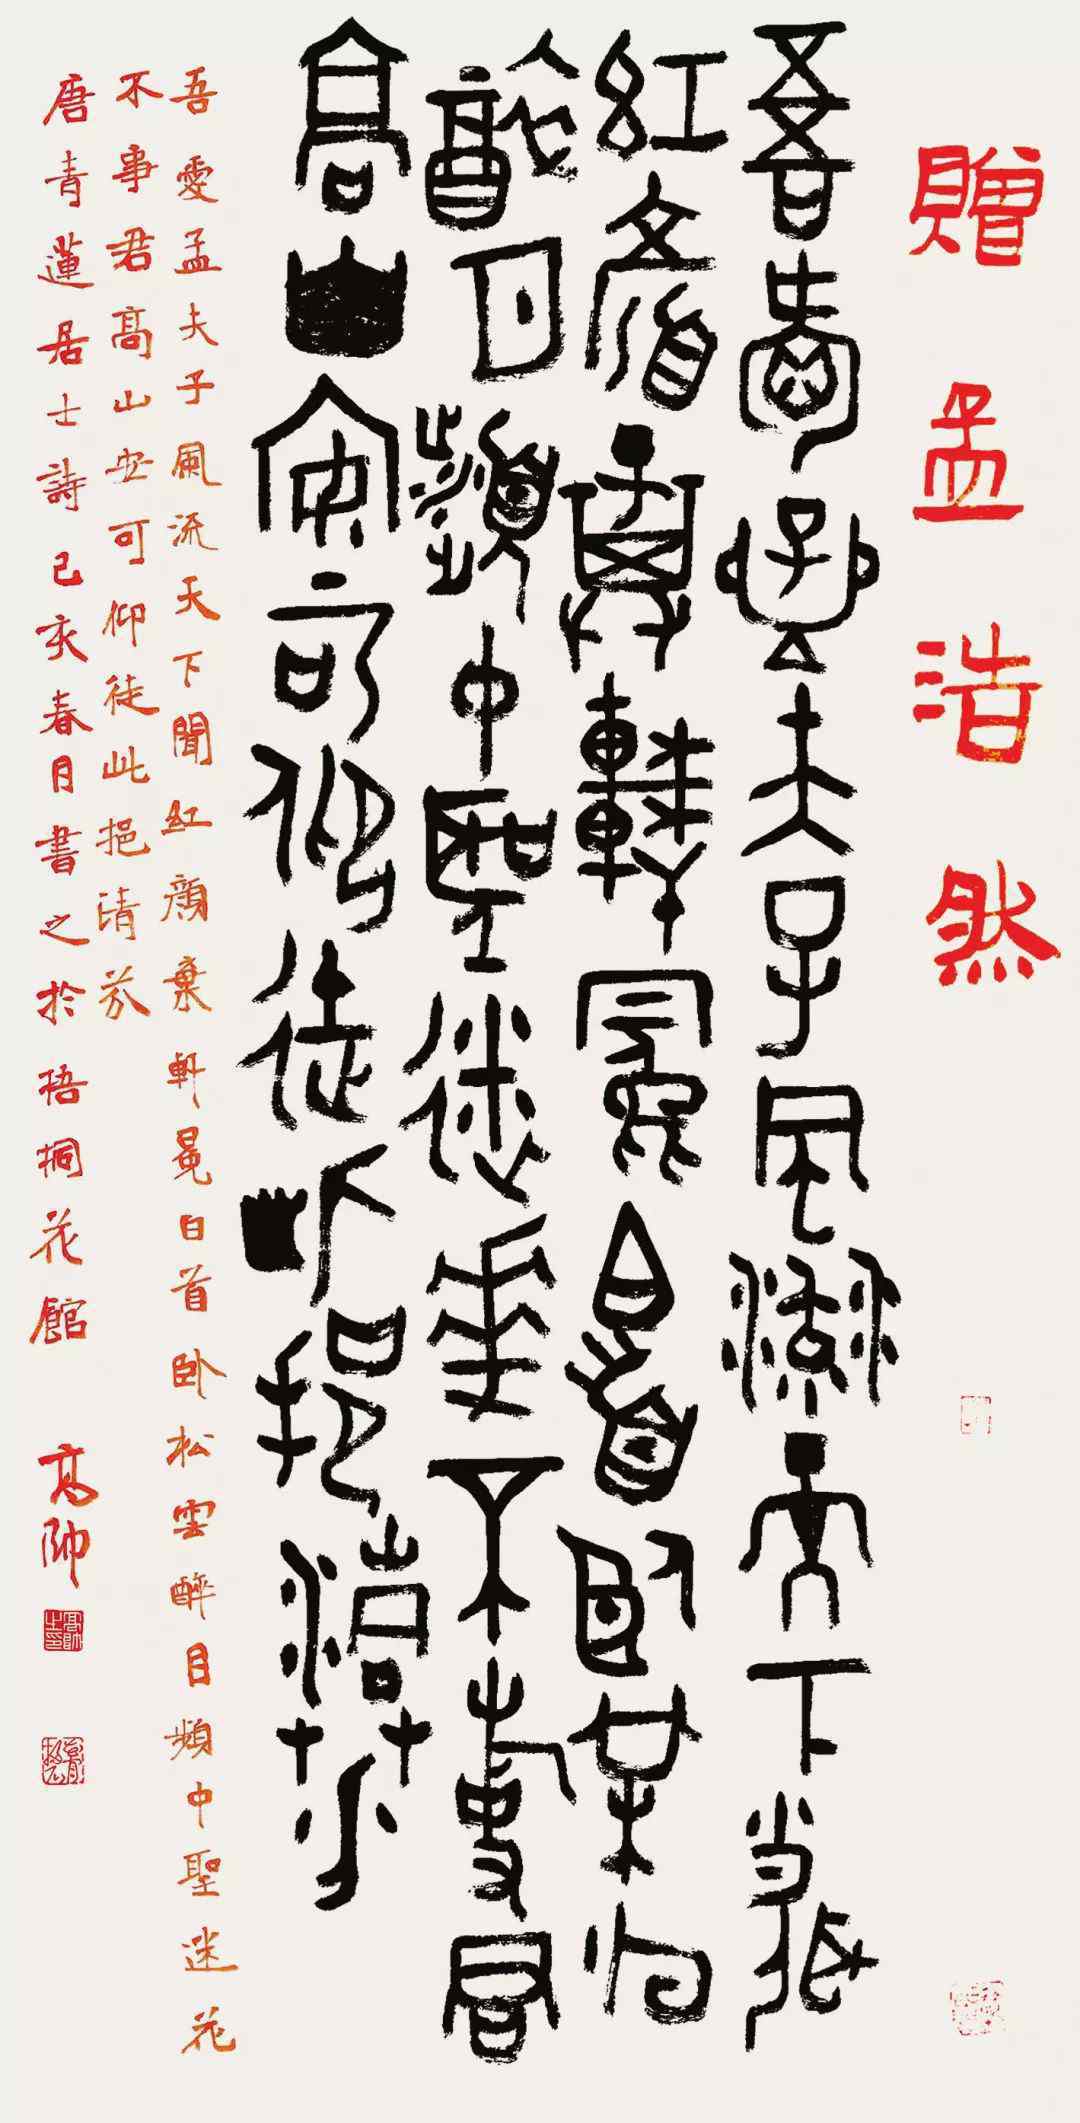 贈孟浩然
吾愛孟夫子風流天下聞
紅顏棄軒冕白首臥松雲
醉月頻中聖迷花不事君
高山安可仰徒此挹清芬
吾愛孟夫子風流天下聞紅顏棄軒冕白首卧松雲醉月頻中聖迷花
不事君高山安可仰徒此挹清芬
唐青蓮居士詩己亥春月書之於梧桐花館 高帥
高帥之印